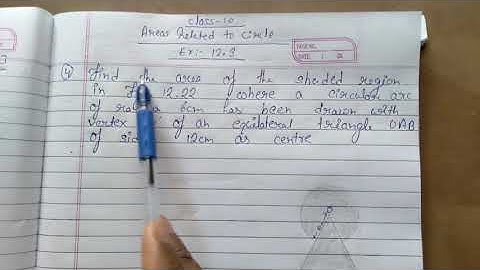 Class-10
Areas Related to Circle
Ex:- 12.3
④ Find the area of the shaded region
in 12.22 where a circular arc
of radius 6cm has been drawn with
vertex of an equilateral triangle OAB
of side 12cm as centre
DATE